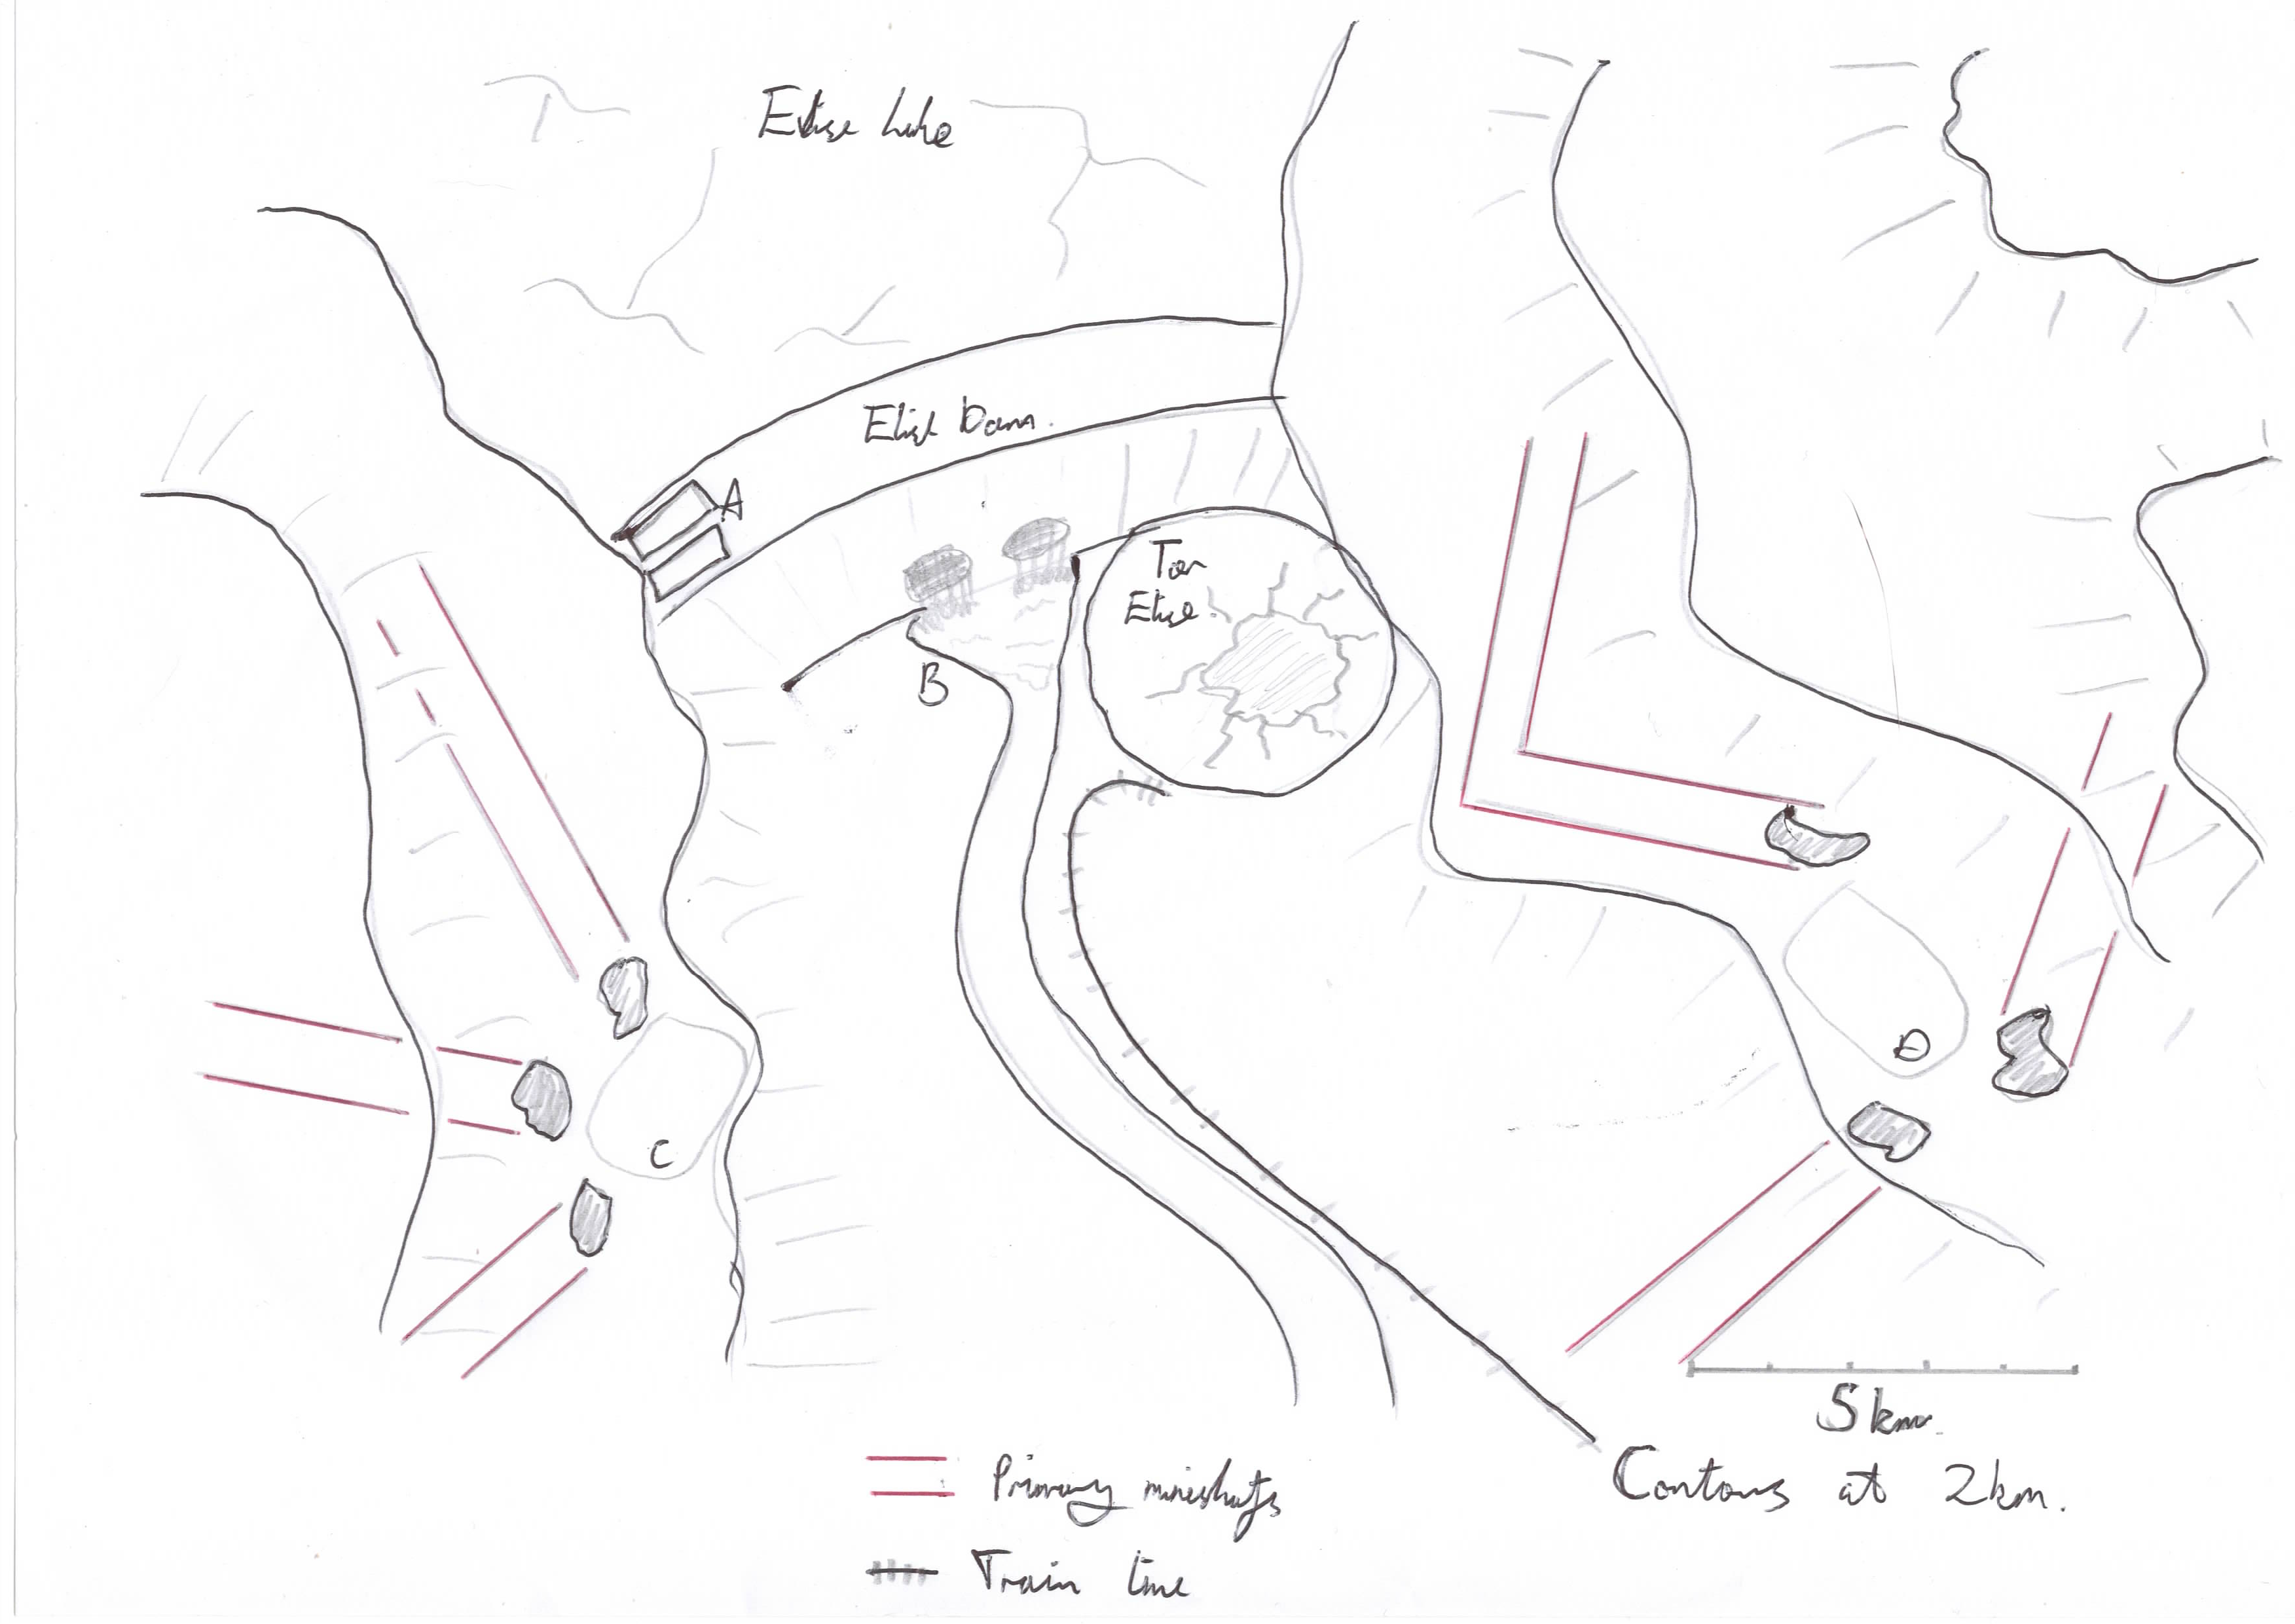 Elise Lake
Elise Dam.
A
Tor
Elise.
B
C
D
5 km
Contours at 2km.
Primary mineshafts
Train line